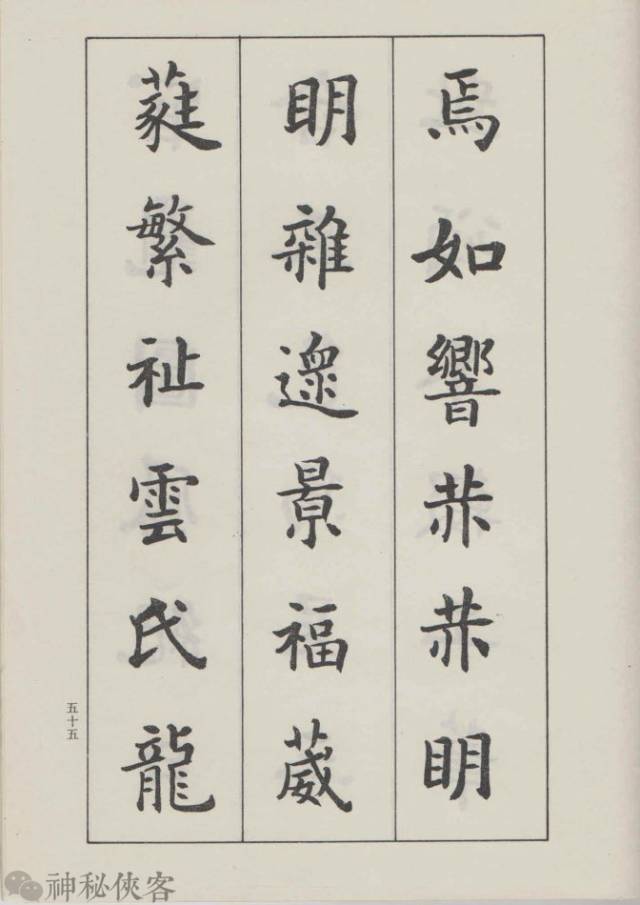 焉如響赫赫明
明雜遝景福葳
蕤繁祉雲氏龍
五十五
神秘俠客